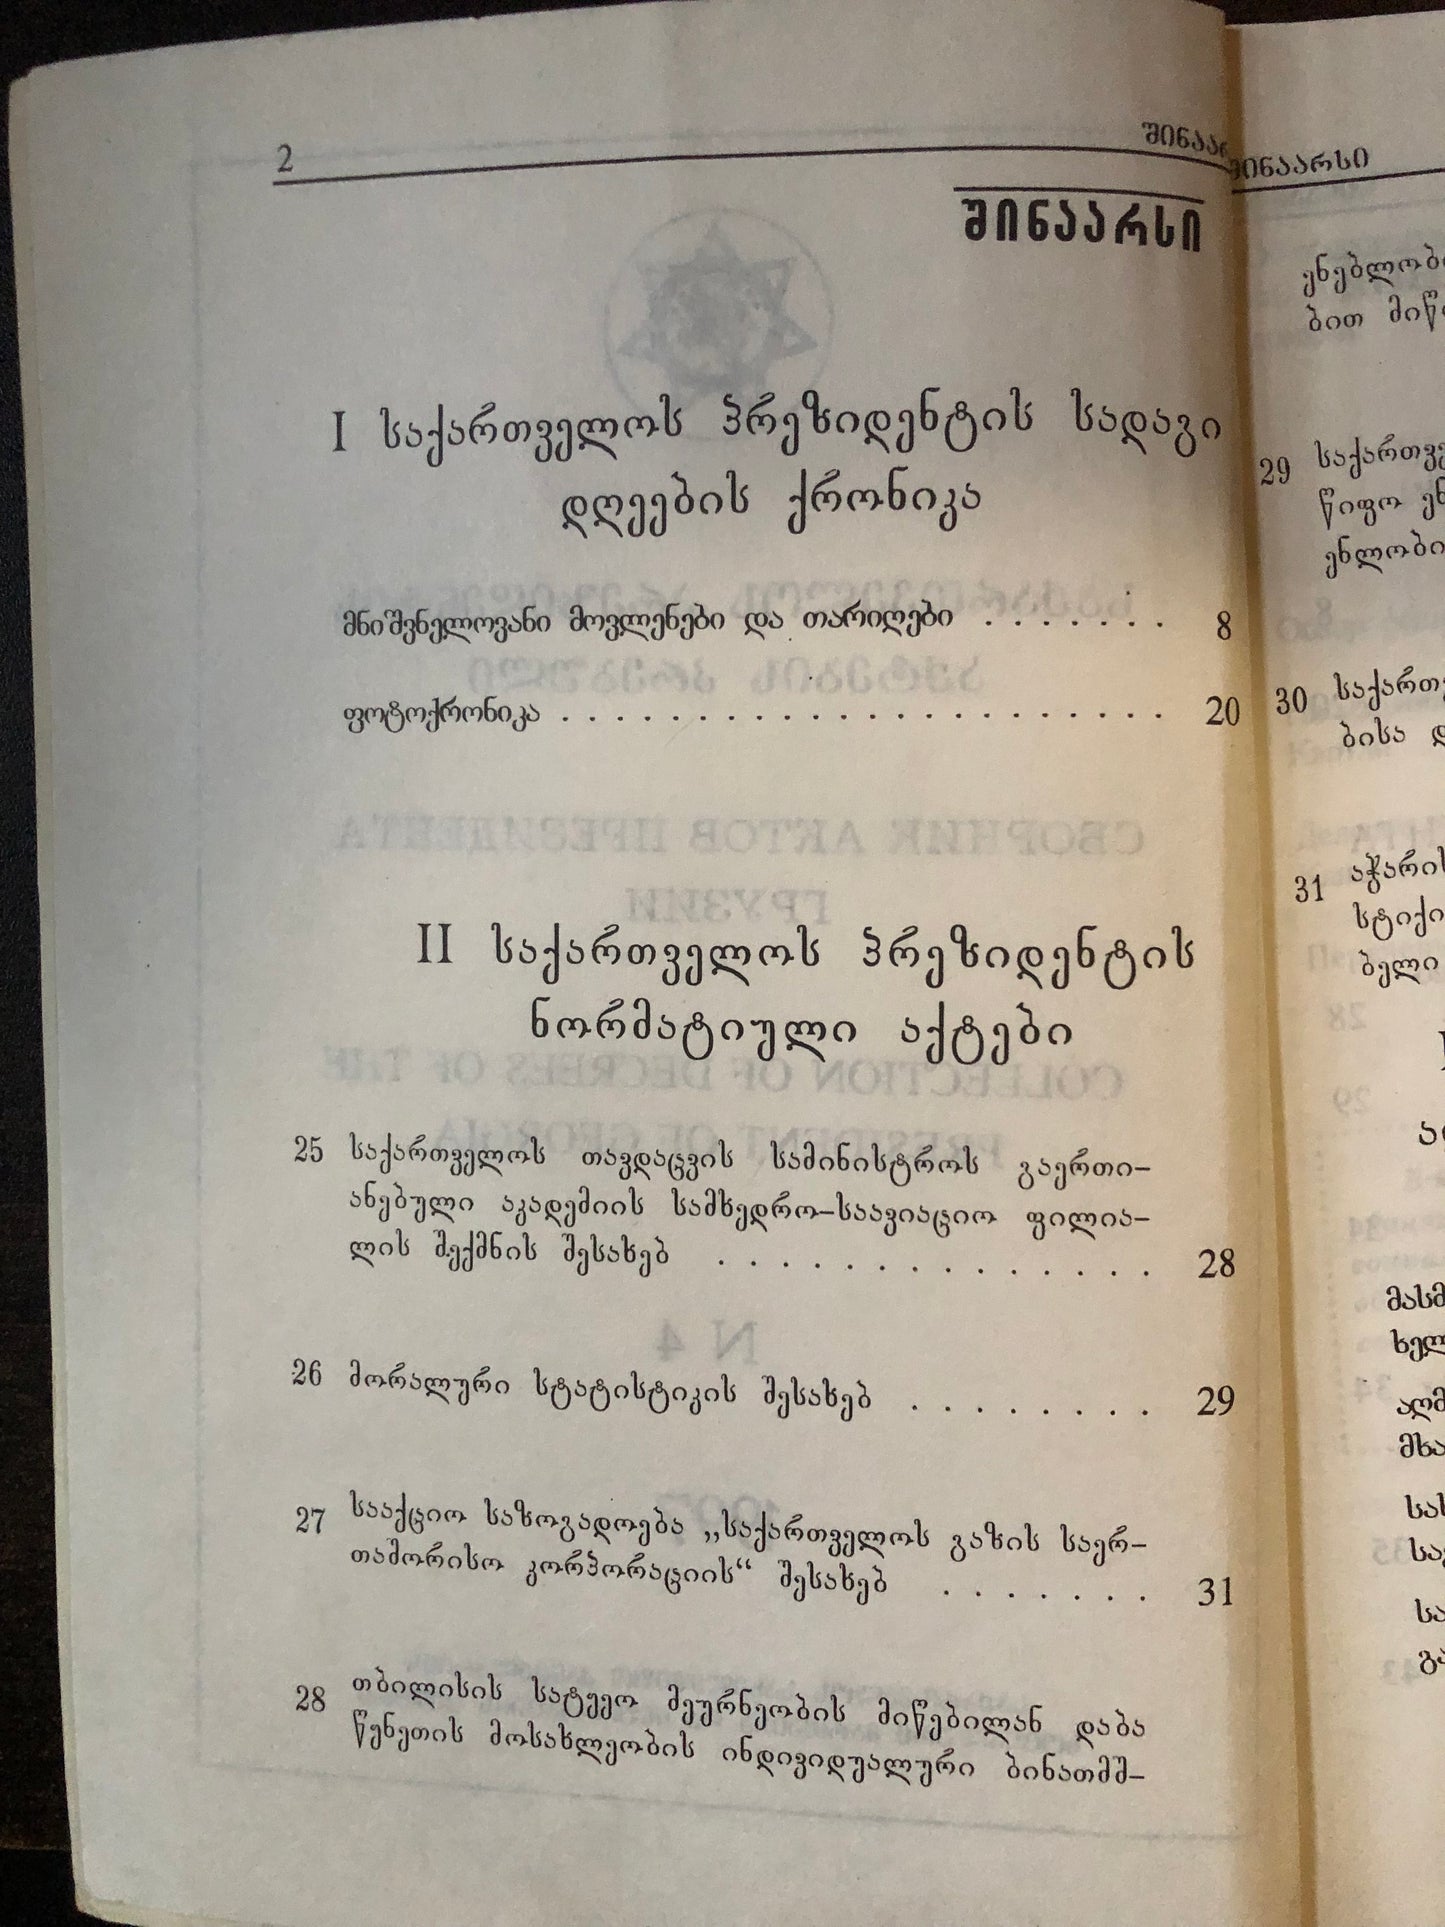 2
შინაარსი
შინაარსი
I საქართველოს პრეზიდენტის სადაგი
დღეების ქრონიკა
მნიშვნელოვანი მოვლენები და თარიღები . . . . . . . 8
ფოტოქრონიკა . . . . . . . . . . . . . . . . . . . . . . 20
II საქართველოს პრეზიდენტის
ნორმატიული აქტები
25 საქართველოს თავდაცვის სამინისტროს გაერთი–
ანებული აკადემიის სამხედრო–საავიაციო ფილია–
ლის შექმნის შესახებ . . . . . . . . . . . . . . 28
26 მორალური სტატისტიკის შესახებ . . . . . . . . 29
27 სააქციო საზოგადოება „საქართველოს გაზის საერ–
თაშორისო კორპორაციის“ შესახებ . . . . . . . 31
28 თბილისის სატყეო მეურნეობის მიწებილან დაბა
წყნეთის მოსახლეობის ინდივიდუალური ბინათმშ–
29 საქართვე
წიფო
30 საქართვ
ბისა
31 აჭარის
ბელი